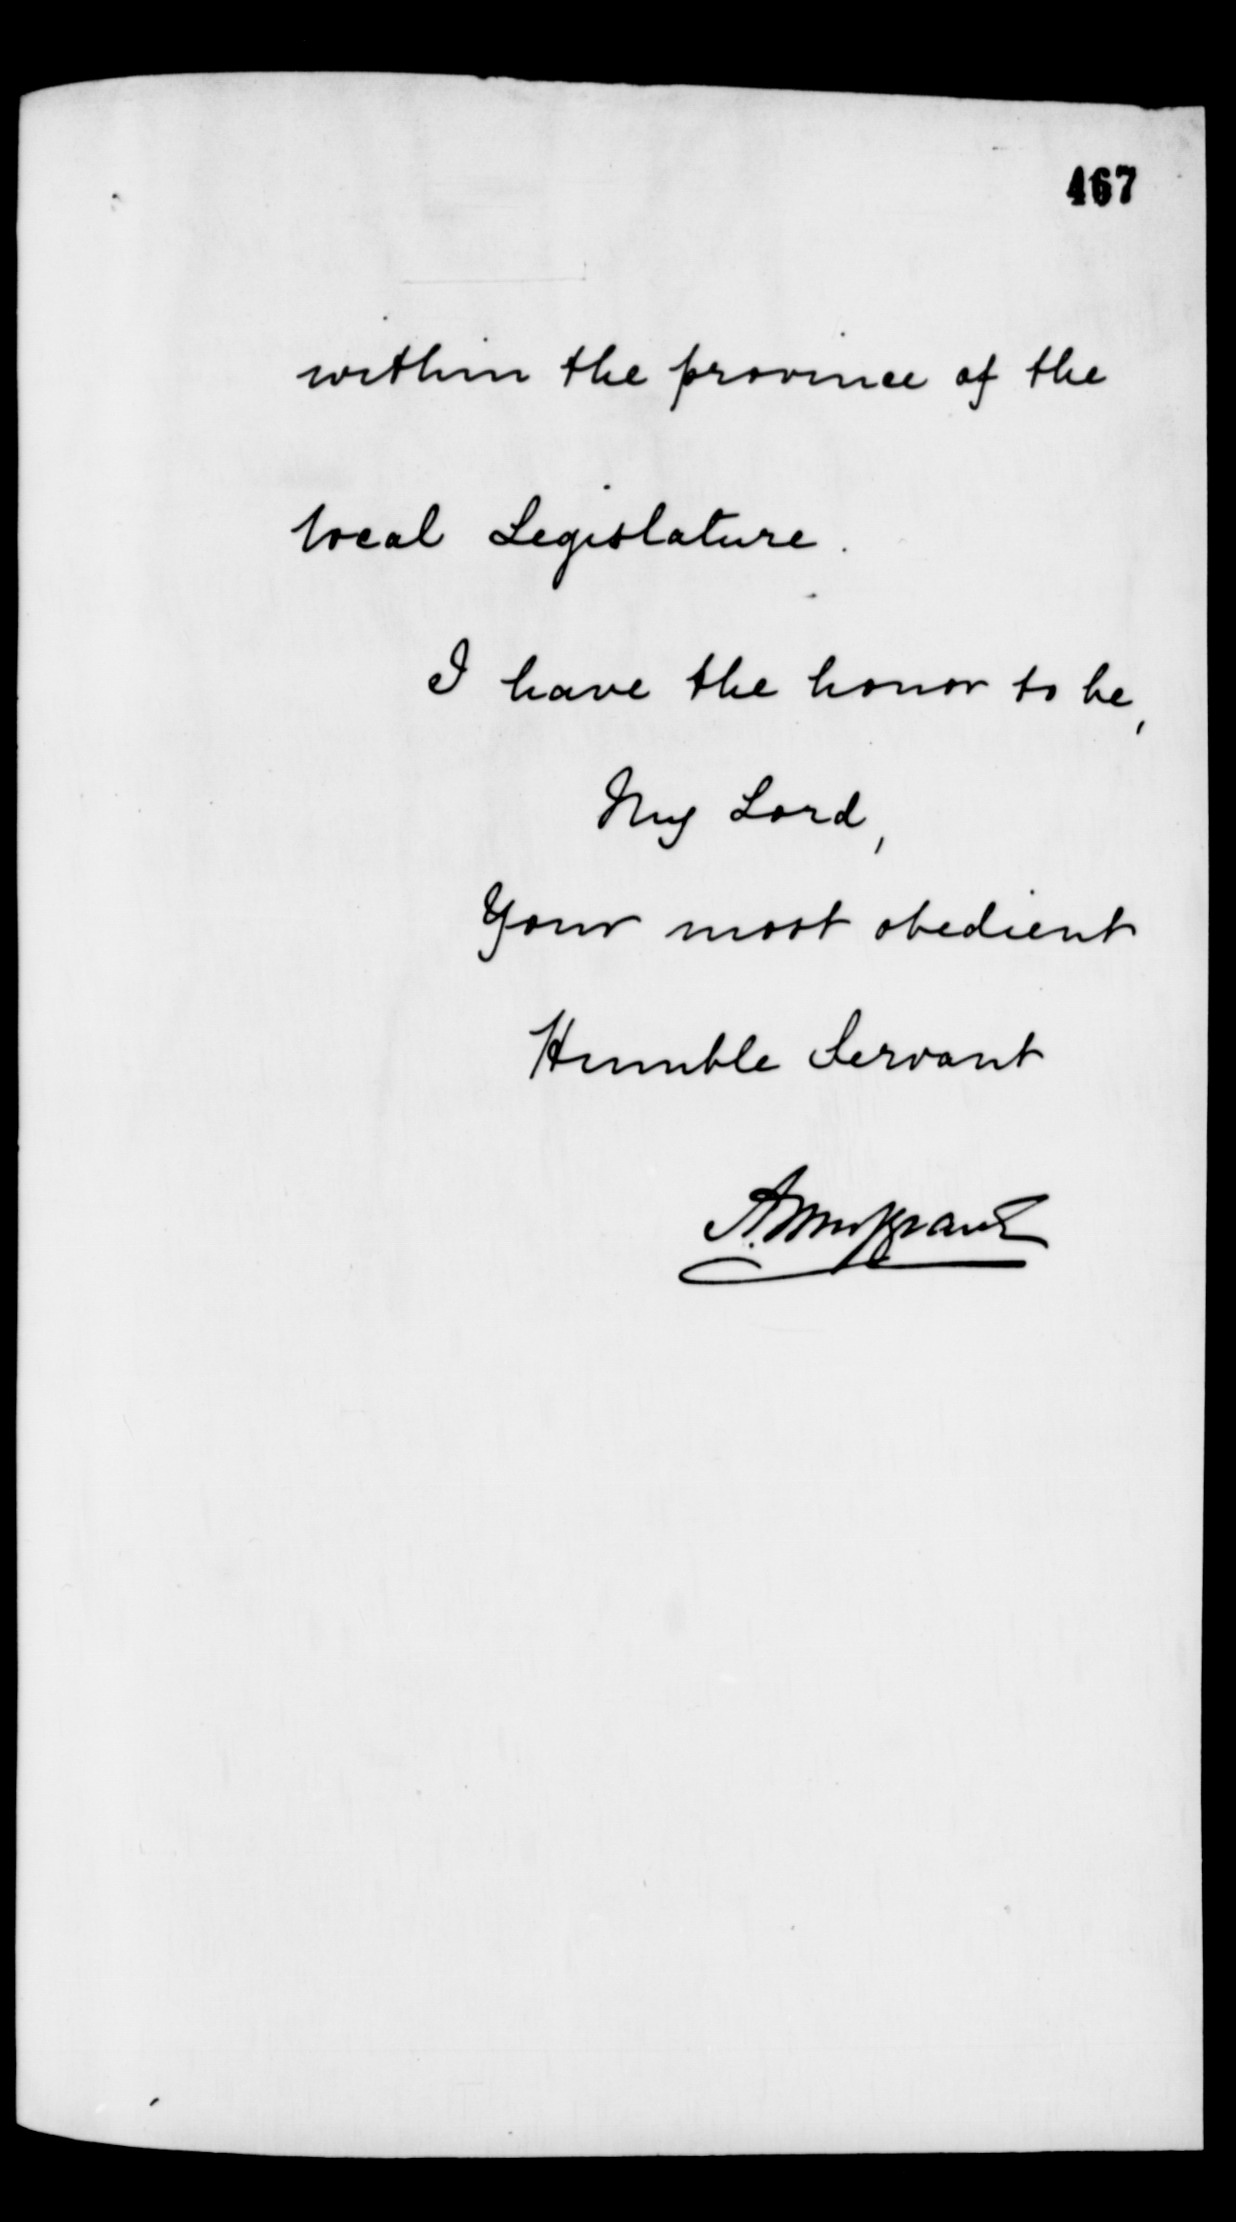 467
within the province of the
local Legislature.
I have the honor to be,
My Lord,
Your most obedient
Humble Servant
A. Musgrave